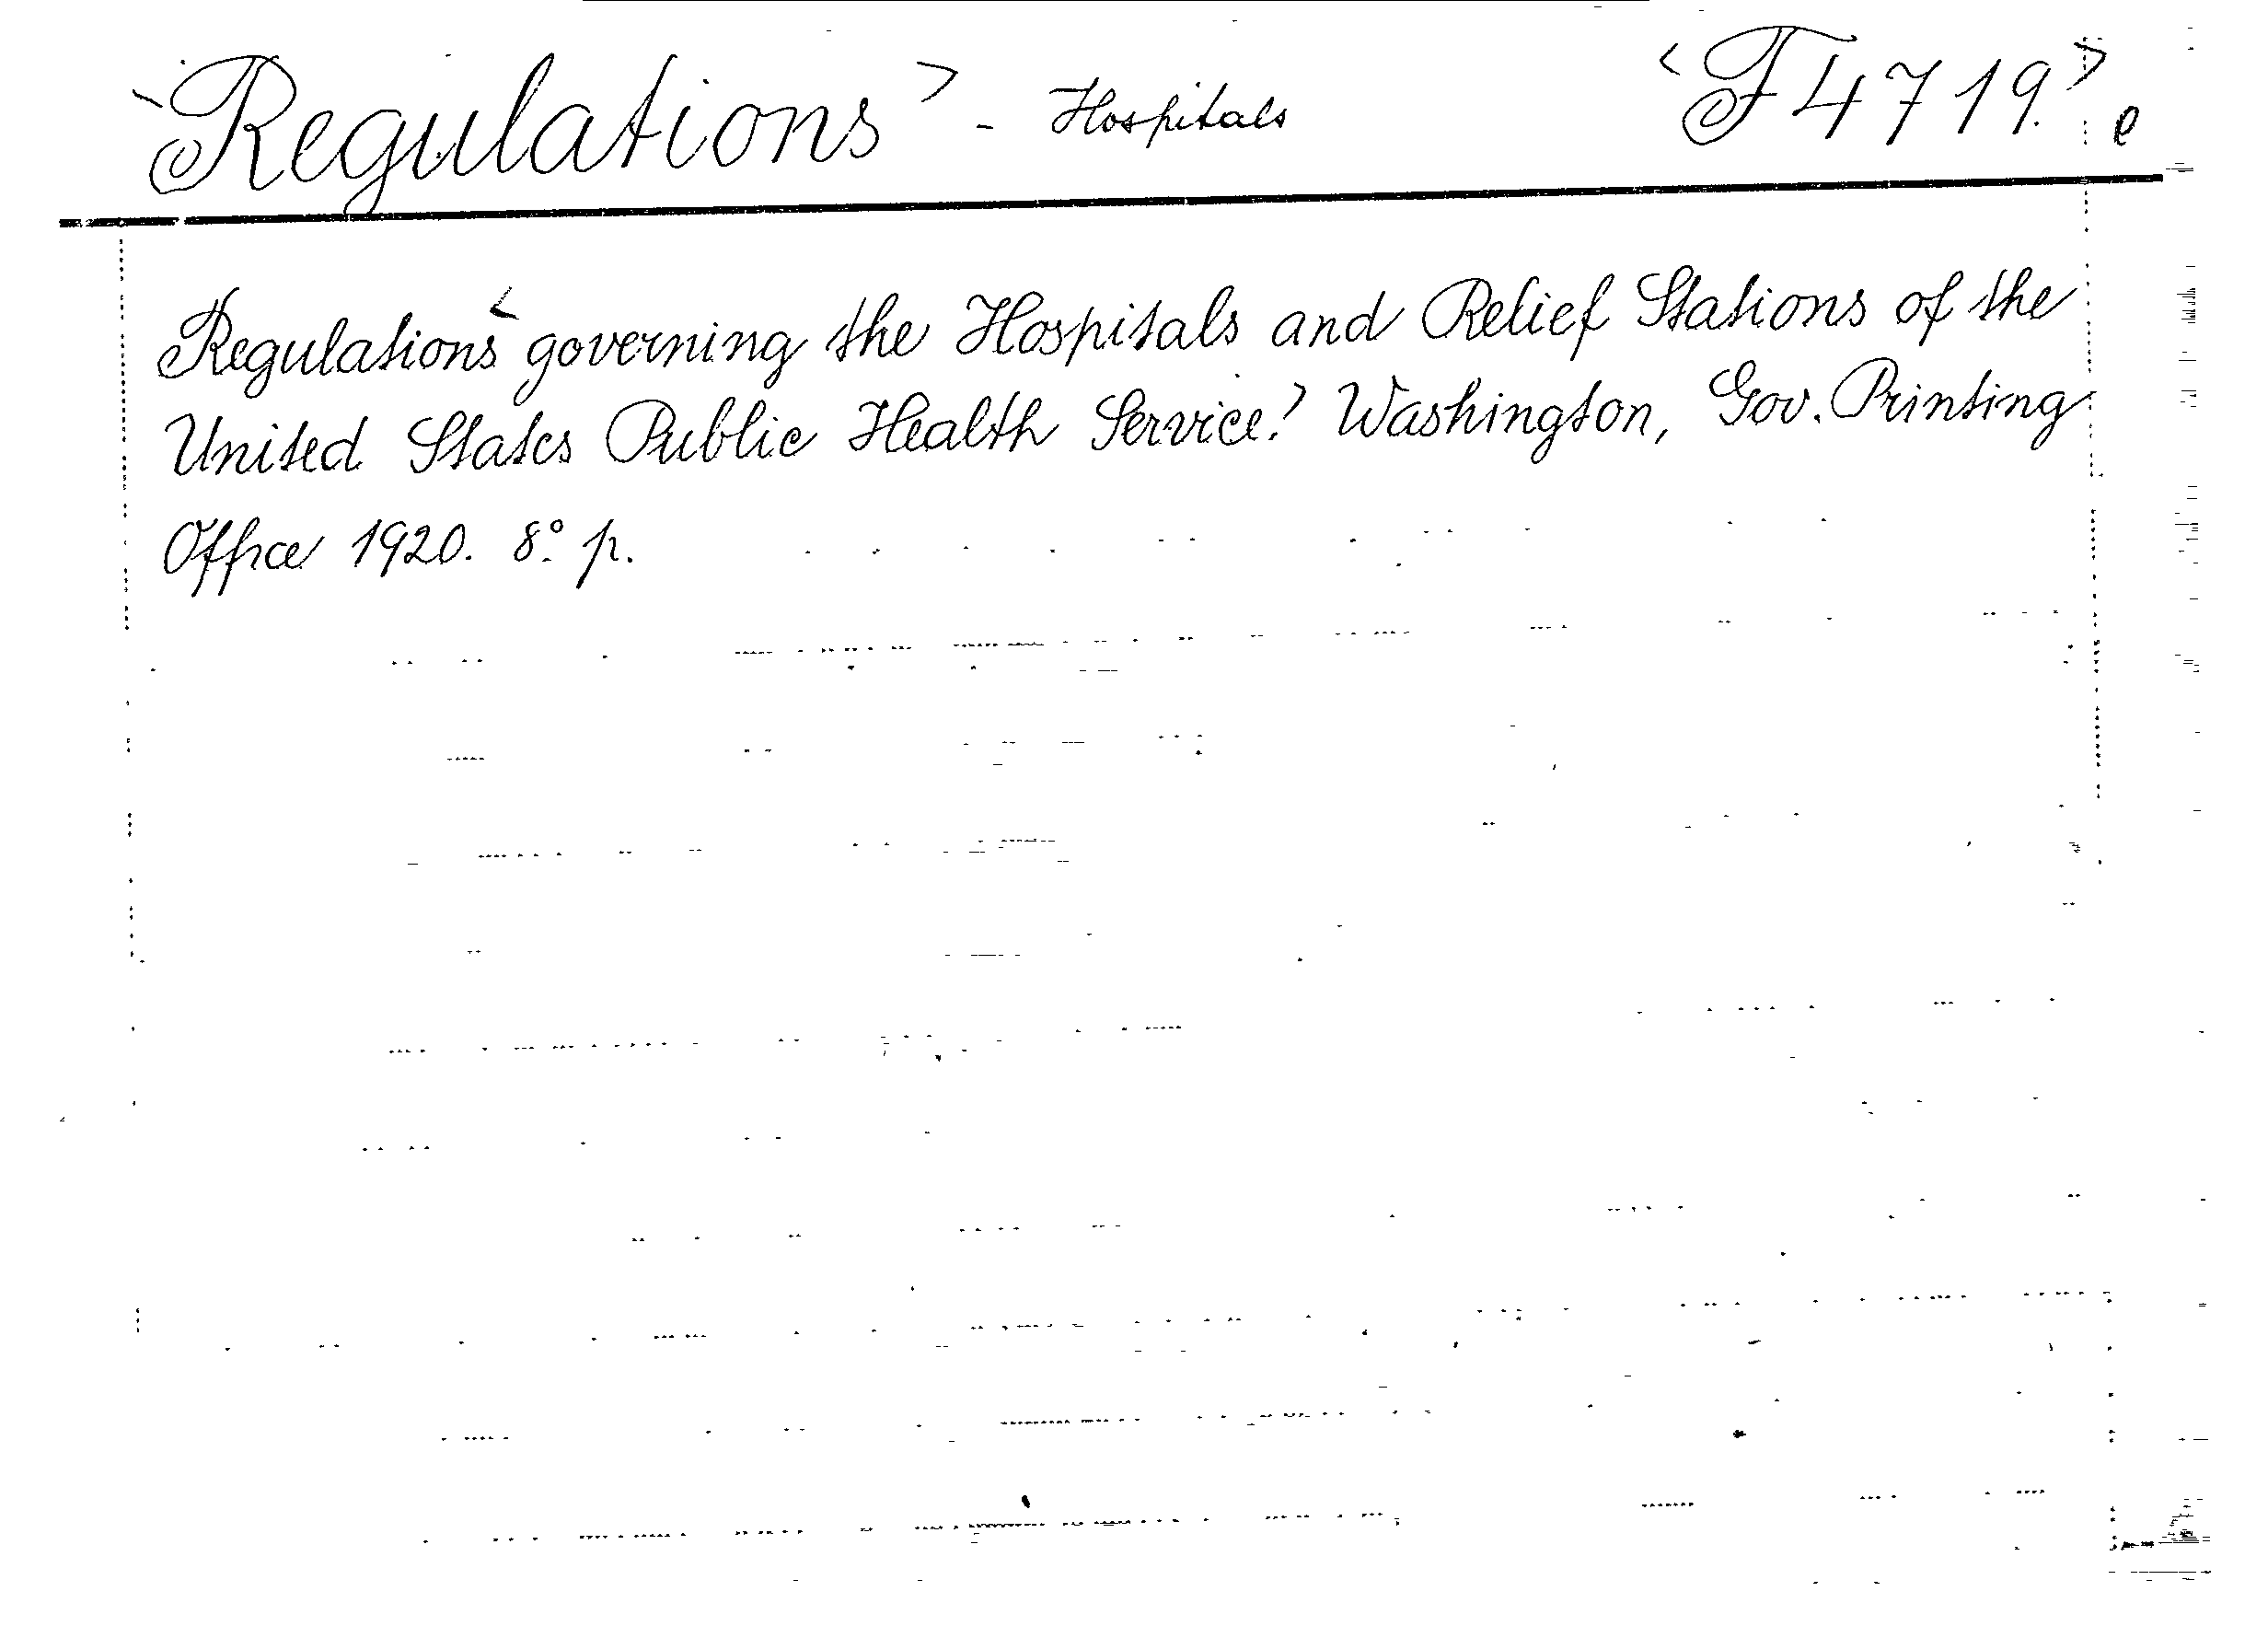 <Regulations> - Hospitals <F4719.> e
Regulations < governing the Hospitals and Relief Stations of the
United States Public Health Service.> Washington, Gov. Printing
Office 1920. 8.° p.